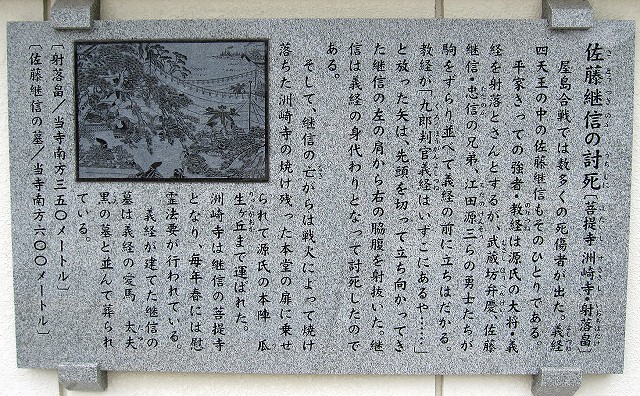 佐藤継信の討死〔菩提寺 洲崎寺・射落畠〕
屋島合戦では数多くの死傷者が出た。義経
四天王の中の佐藤継信もそのひとりである
平家きっての強者・教経は源氏の大将・義
経を射落とさんとするが、武蔵坊弁慶、佐藤
継信・忠信の兄弟、江田源三らの勇士たちが
駒をずらり並べて義経の前に立ちはだかる。
教経が「九郎判官義経はいずこにあるや……」
と放った矢は、先頭を切って立ち向かってき
た継信の左の肩から右の脇腹を射抜いた。継
信は義経の身代わりとなって討死したので
ある。
そして、継信の亡がらは戦火によって焼け
落ちた洲崎寺の焼け残った本堂の扉に乗せ
られて源氏の本陣、瓜
生ヶ丘まで運ばれた。
洲崎寺は継信の菩提寺
となり、毎年春には慰
霊法要が行われている。
義経が建てた継信の
墓は義経の愛馬 太夫
黒の墓と並んで葬られ
ている。
〔射落畠／当寺南方三五〇メートル〕
〔佐藤継信の墓／当寺南方六〇〇メートル〕